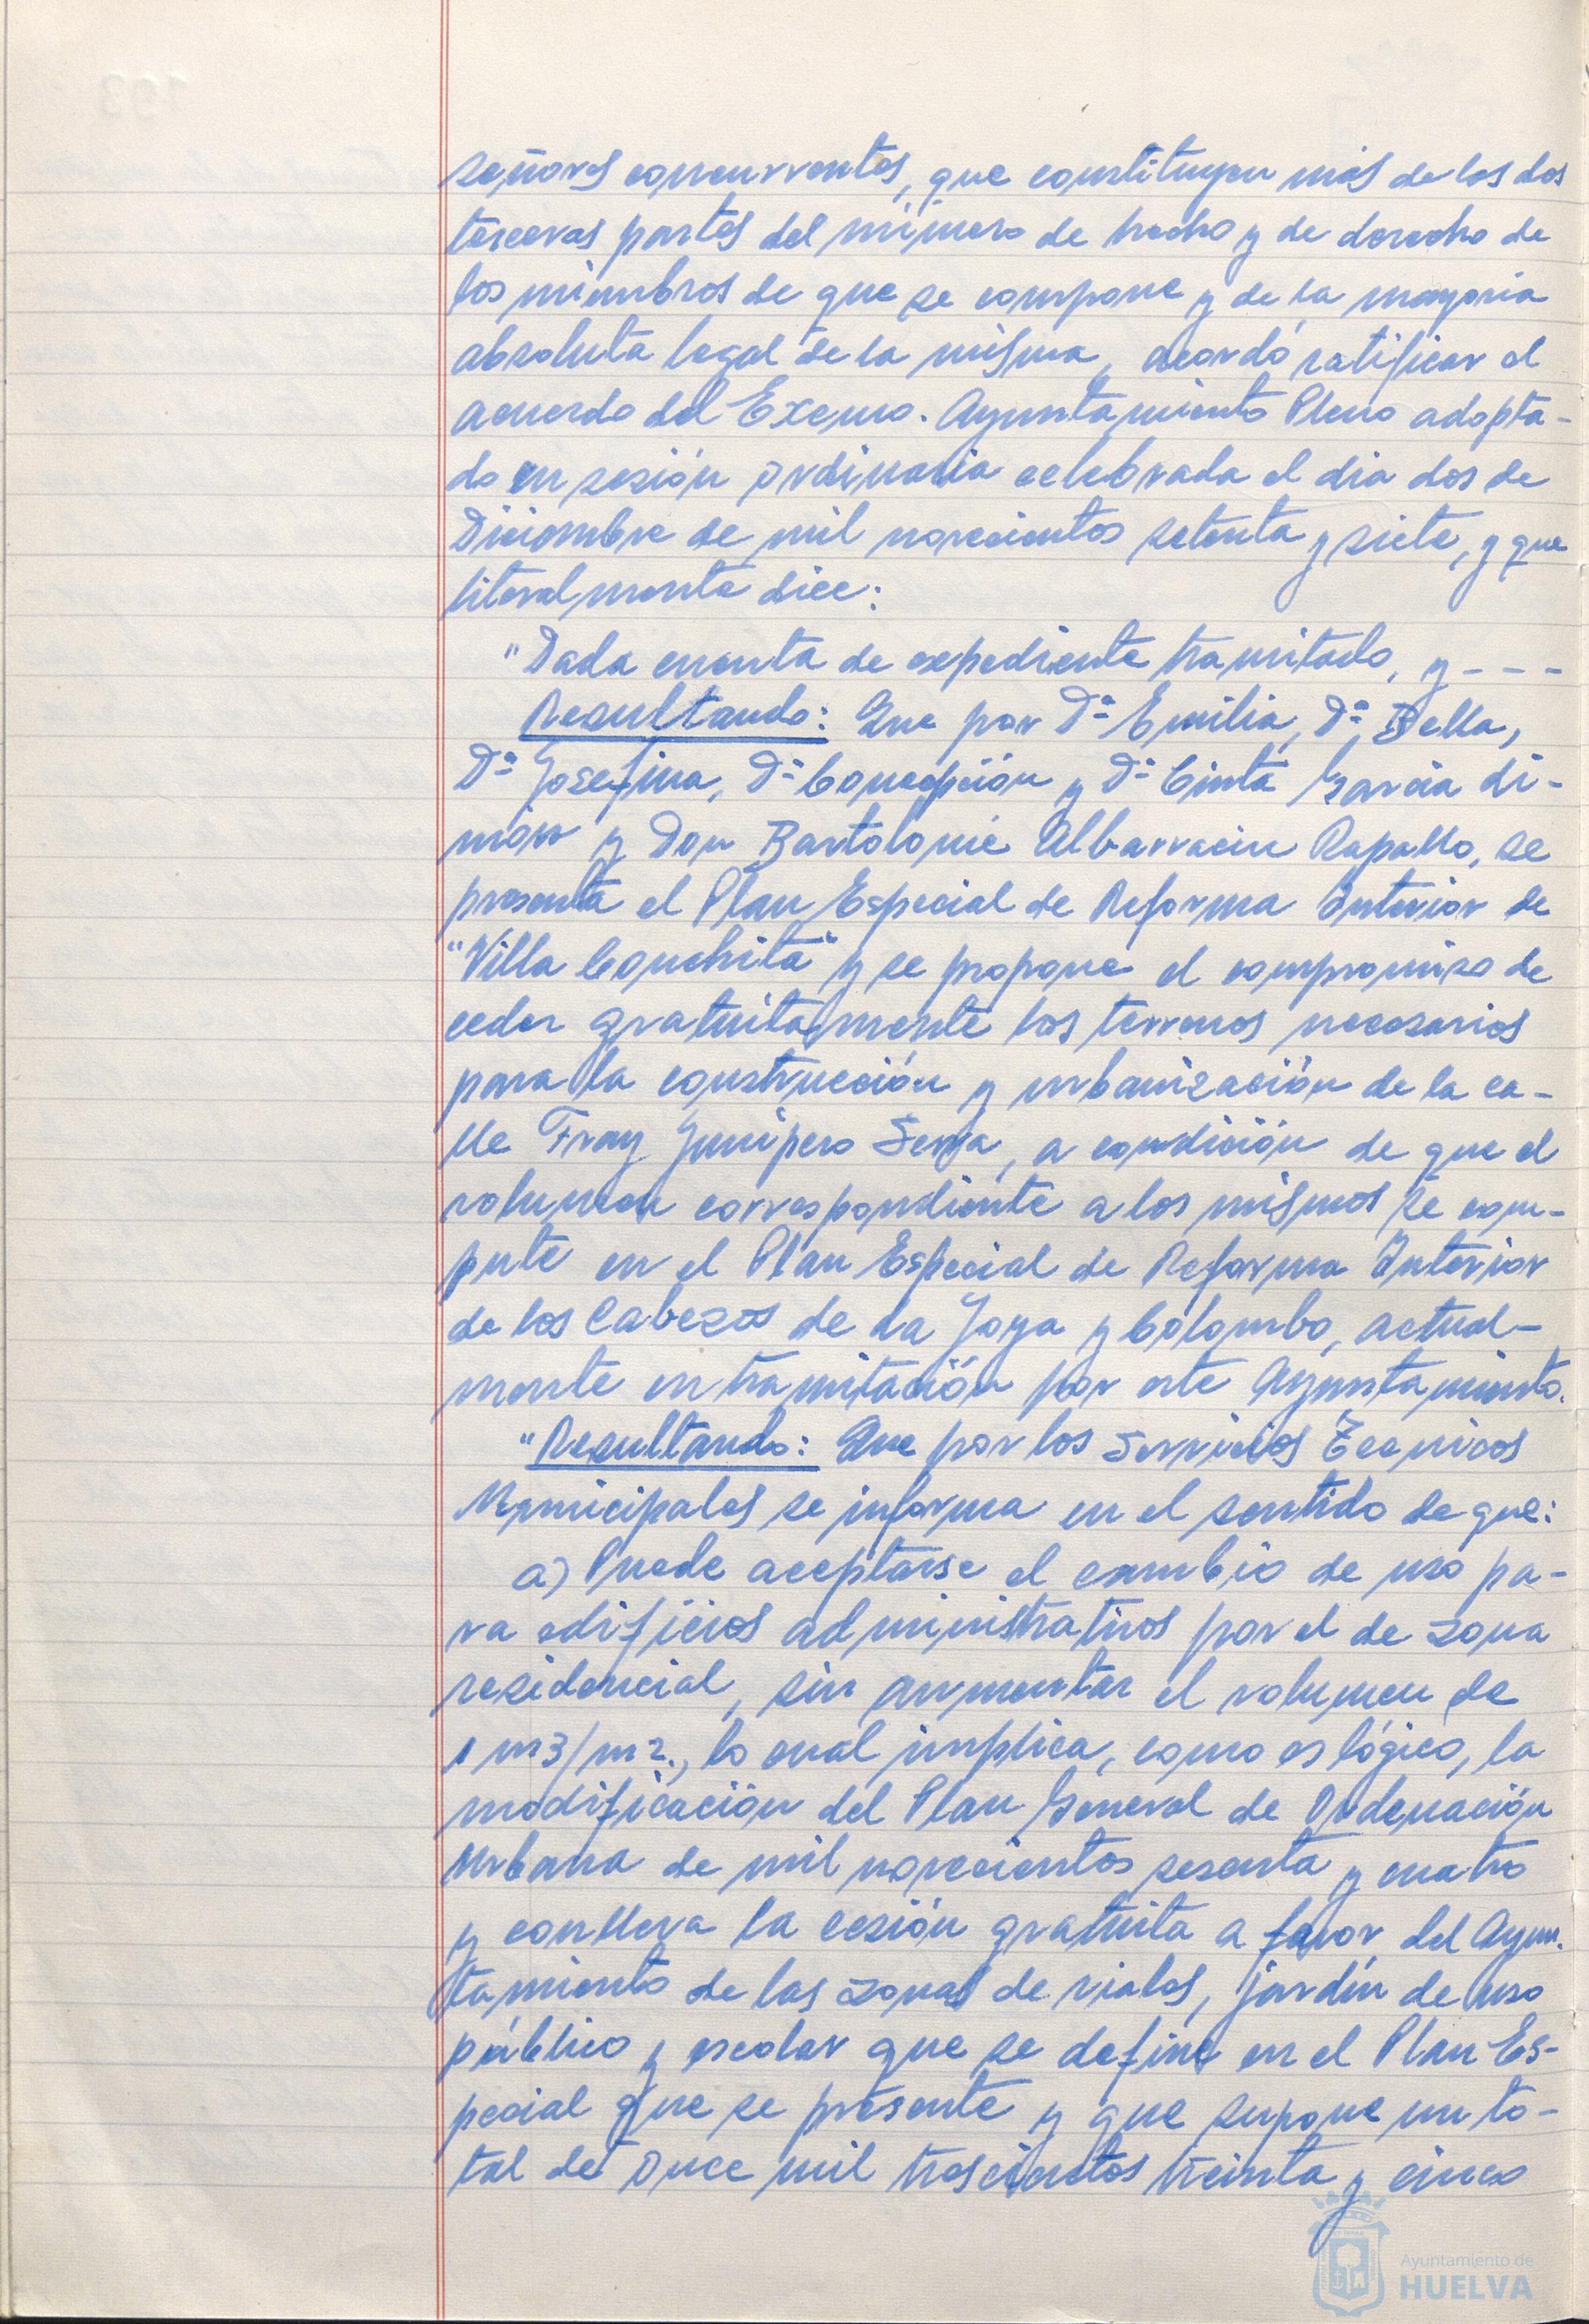 señores concurrentes, que constituyen más de las dos
terceras partes del número de hecho y de derecho de
los miembros de que se compone y de la mayoria
absoluta legal de la misma, acordó ratificar el
acuerdo del Excmo. Ayuntamiento Pleno adopta-
do en sesión ordinaria celebrada el dia dos de
Diciembre de mil novecientos setenta y siete, y que
literalmente dice:
"Dada cuenta de expediente tramitado, y - - -
Resultando: Que por Dª Emilia, Dª Bella,
Dª Josefina, Dª Concepción y Dª Cinta Garcia Di-
mon y Don Bartolomé Albarracin Rapallo, se
presenta el Plan Especial de Reforma Interior de
"Villa Conchita" y se propone el compromiso de
ceder gratuitamente los terrenos necesarios
para la construcción y urbanización de la ca-
lle Fray Junipero Serra, a condición de que el
volumen correspondiente a los mismos se com-
pute en el Plan Especial de Reforma Interior
de los Cabezos de La Joya y Colombo, actual-
mente en tramitación por este Ayuntamiento.
"Resultando: Que por los Servicios Tecnicos
Municipales se informa en el sentido de que:
a) Puede aceptarse el cambio de uso pa-
ra edificios administrativos por el de zona
residencial, sin aumentar el volumen de
1 m3/m2., lo cual implica, como es lógico, la
modificación del Plan General de Ordenación
Urbana de mil novecientos sesenta y cuatro
y conlleva la cesión gratuita a favor del Ayun.
tamiento de las zonas de viales, jardín de uso
público y escolar que se define en el Plan Es-
pecial que se presente y que supone un to-
tal de once mil trescientos treinta y cinco
Ayuntamiento de
HUELVA